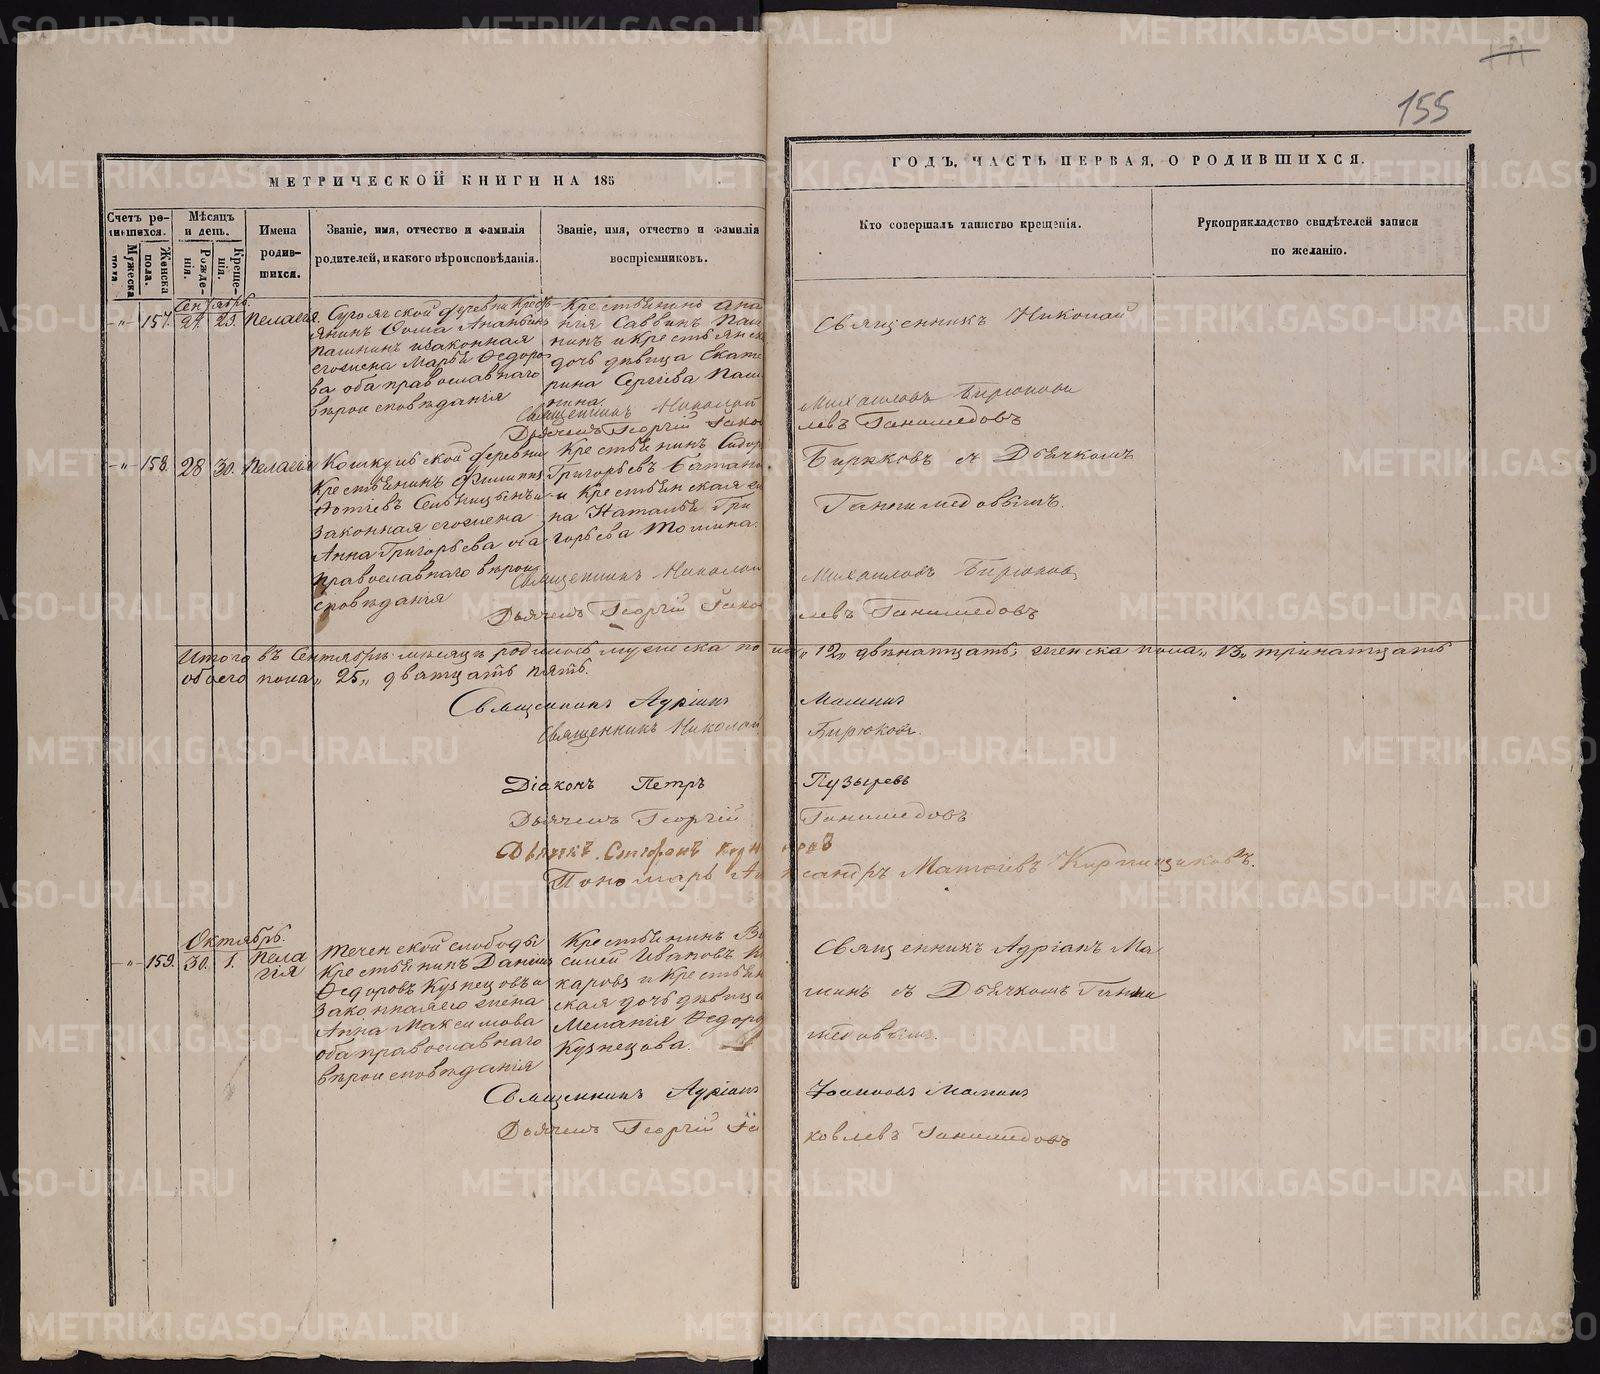 155
МЕТРИЧЕСКОЙ КНИГИ НА 185
ГОДЪ, ЧАСТЬ ПЕРВАЯ, О РОДИВШИХСЯ.
Счетъ ро-
дившихся.
Мужеска пола.
Женска пола.
Мѣсяцъ и день.
Рожденія.
Крещенія.
Имена родив-
шихся.
Званіе, имя, отчество и фамилія
родителей, и какого вѣроисповѣданія.
Званіе, имя, отчество и фамилія
воспріемниковъ.
Кто совершалъ таинство крещенія.
Рукоприкладство свидѣтелей записи
по желанію.
Сентябрь.
157. 27. 29. Пелагія
деревни Крестъ-
янинъ Ѳома Ананьинъ
Пашнинъ и законная
его жена Марья Ѳедоро
ва оба православнаго
вѣроисповѣданія
Крестьянинъ Ана
нія Саввинъ Паш
нинъ и крестьянск
дочь дѣвица Екате
рина Сергѣева Паш
нина.
Священникъ Николай
Священникъ Николай Михаиловъ Бирюковъ
Дьячекъ Георгій Яковлевъ Ганимедовъ
158. 28 30. Пелагія
деревни
Крестьянинъ Филиппъ
Законная его жена
Анна Григорьева оба
православнаго вѣрои
сповѣданія
Крестьянинъ Сидор
Григорьевъ
и Крестьянская
на Наталья Гри
горьева Тошина.
Бирюковъ съ Дьячкомъ
Ганимедовымъ.
Священникъ Николай Михаиловъ Бирюковъ
Дьячекъ Георгій Яковлевъ Ганимедовъ
Итого въ Сентябрѣ мѣсяцѣ родилось мужеска пола „12„ двѣнатцать, женска пола „13„ тринатцать
обоего пола „25„ дватцать пять.
Священникъ Адріанъ Маминъ
Священникъ Николай Бирюковъ.
Діаконъ Петръ Пузыревъ
Дьячекъ Георгій Ганимедовъ
Дьячекъ Стефанъ
Пономарь Александръ Матѳіевъ Кирпищиковъ.
Октябрь.
159. 30. 1. Пела
гія
Теченской слободы
Крестьянинъ Даніилъ
Ѳедоровъ Кузнецовъ и
Законная его жена
Анна Максимова
оба православнаго
вѣроисповѣданія
Крестьянинъ Ва
силей Ивановъ
каровъ и Крестьян
ская дочь дѣвица
Меланія Ѳедоро
Кузнецова.
Священникъ Адріанъ Ма
минъ съ Дьячкомъ Гани
медовымъ.
Священникъ Адріанъ Іоанновъ Маминъ
Дьячекъ Георгій Яковлевъ Ганимедовъ
METRIKI.GASO-URAL.RU